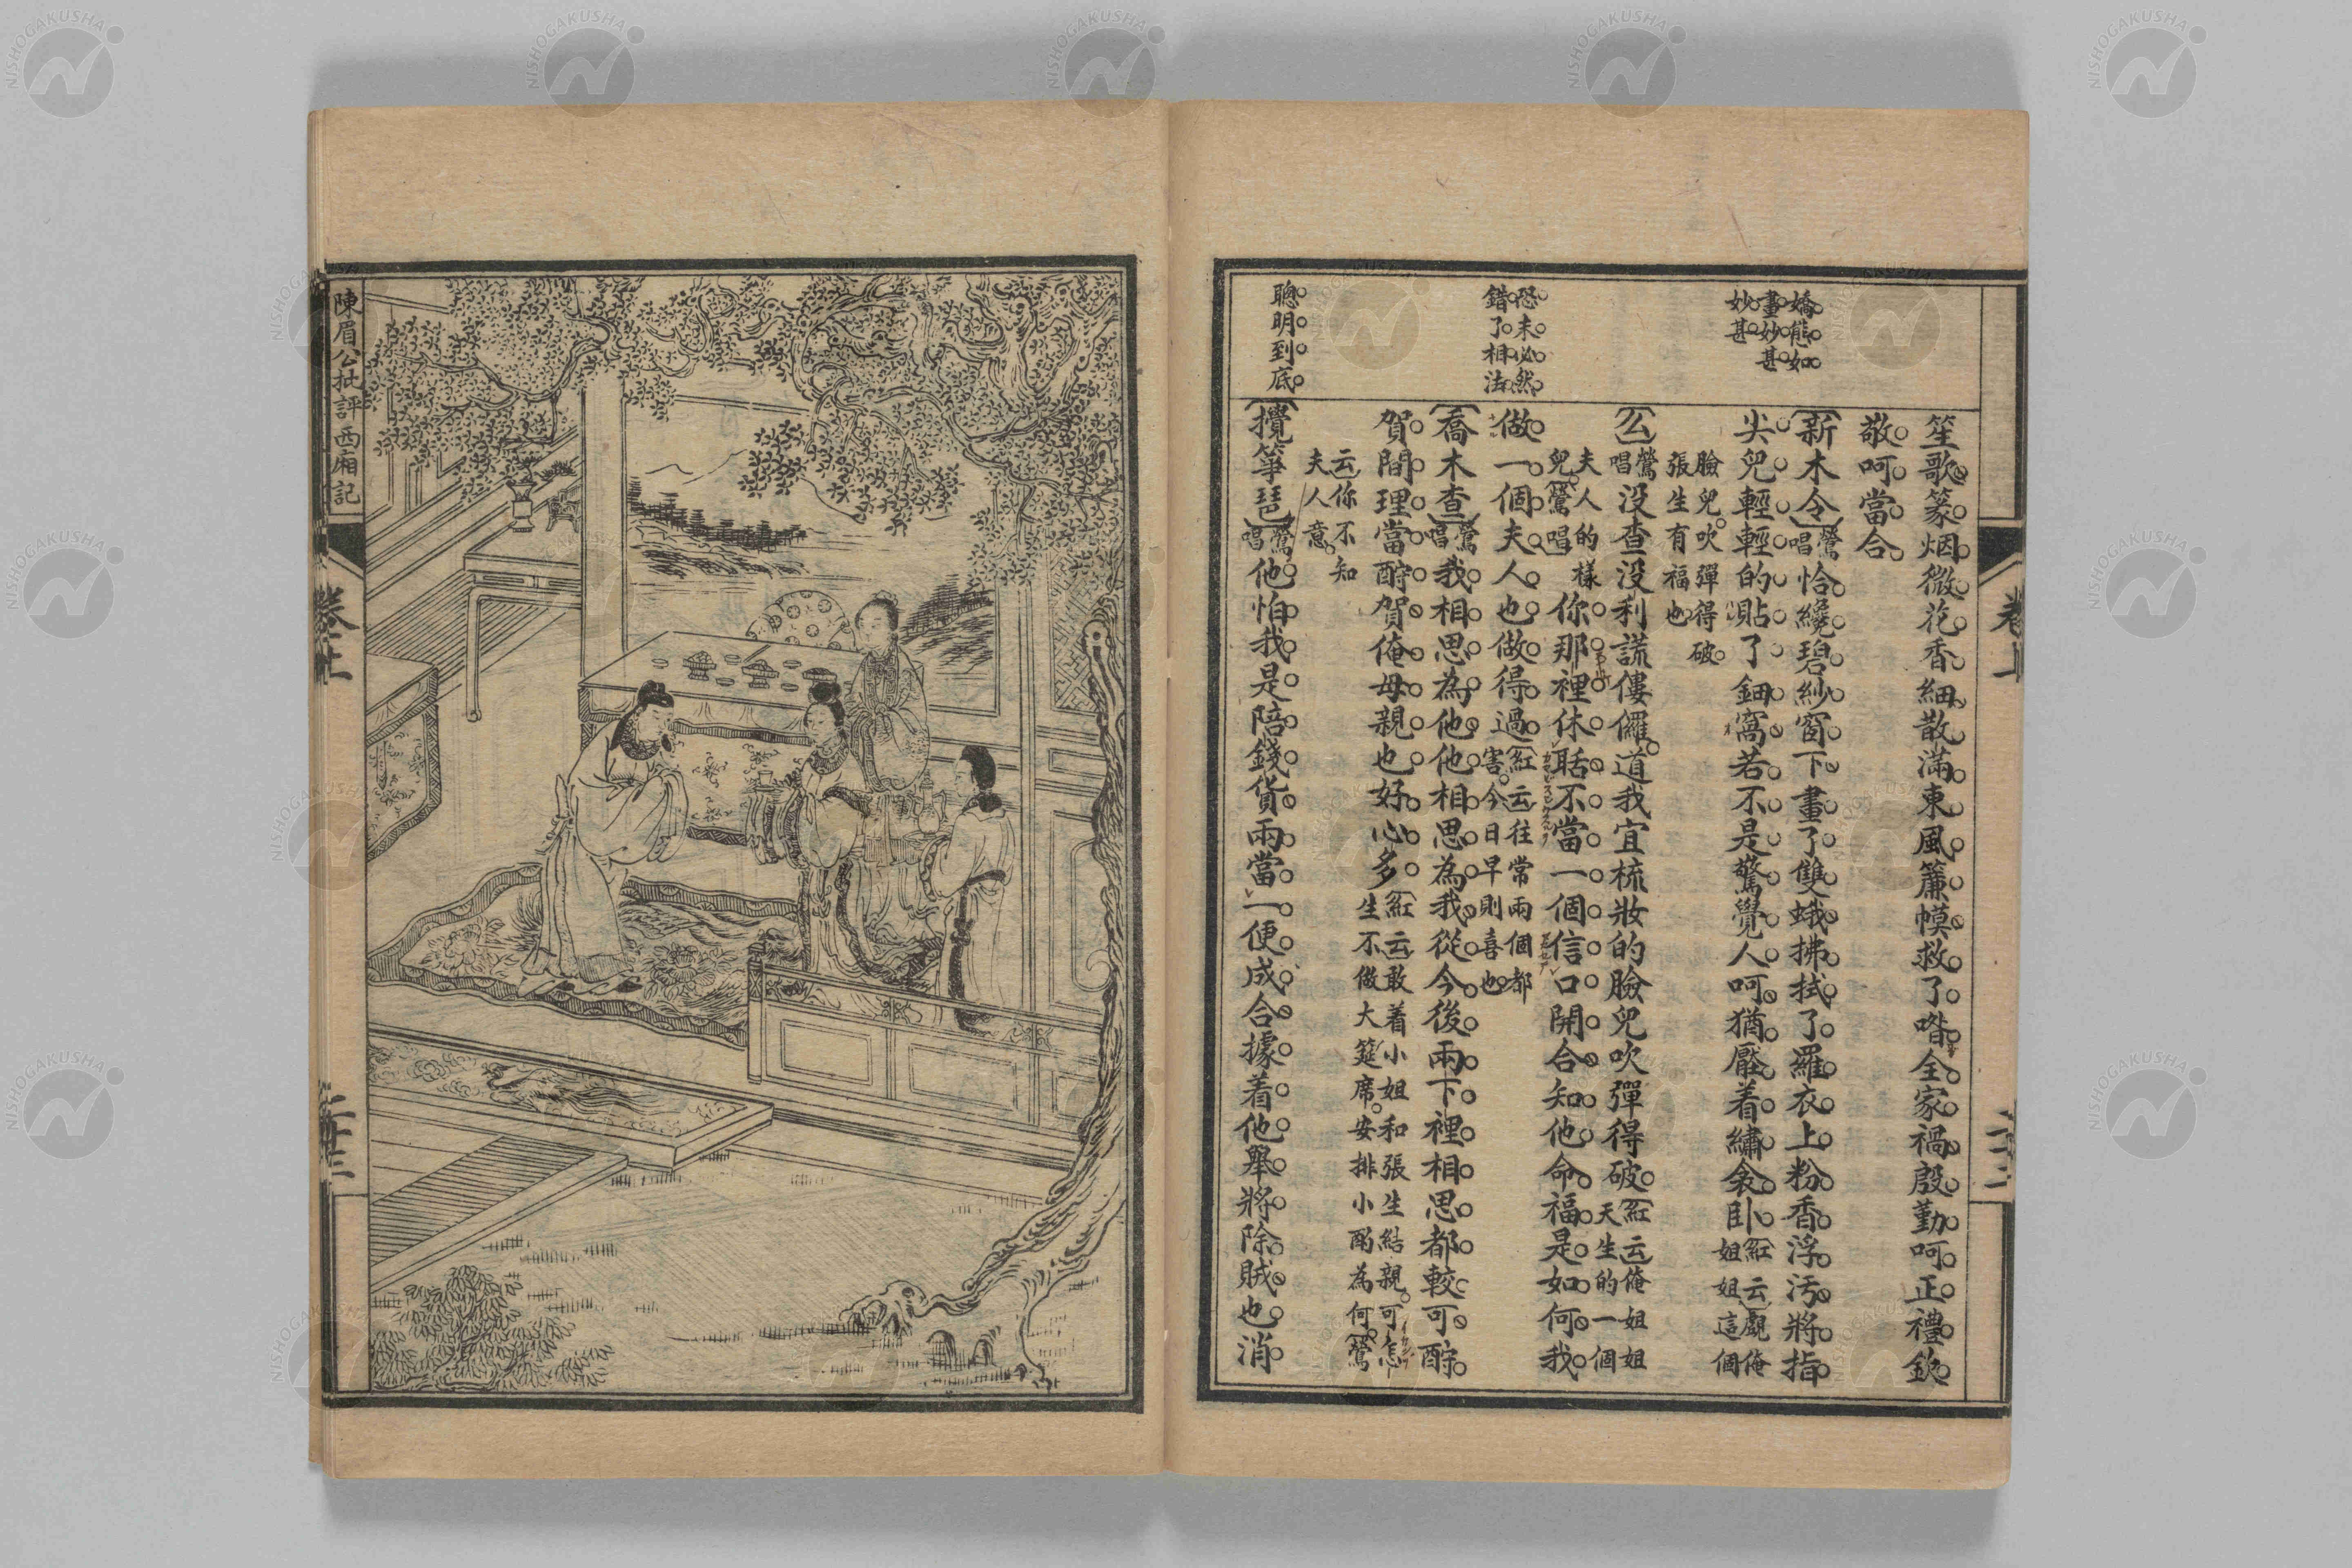 嬌態如
畫妙甚
妙甚
恐未必然
錯了相法
聰明到底
笙歌篆烟微花香細散滿東風簾幙救了喒全家禍殷勤呵正禮欽
敬呵當合
【新木令】鶯唱恰纔碧紗窗下畫了雙蛾拂拭了羅衣上粉香浮污將指
尖兒輕輕的貼了鈿窩若不是驚覺人呵猶壓着繡衾卧【紅云】覷俺姐姐這個
臉兒吹彈得破張生有福也
【幺】鶯唱没查没利謊僂儸道我宜梳妝的臉兒吹彈得破【紅云】俺姐姐天生的一個
夫人的樣兒【鶯唱】你那裡休聒不當一個信口開合知他命福是如何我
做一個夫人也做得過【紅云】往常兩個都害今日早則喜也
【喬木查】鶯唱我相思為他他相思為我從今後兩下裡相思都較可酧
賀間理當酧賀俺母親也好心多【紅云】敢着小姐和張生結親可怎生不做大筵席安排小酌為何【鶯
云】你不知夫人意
【攪箏琶】鶯唱他怕我是陪錢貨兩當一便成合據着他舉將除賊也消
卷上
二十二
陳眉公批評西廂記
卷上
二十三
NISHOGAKUSHA